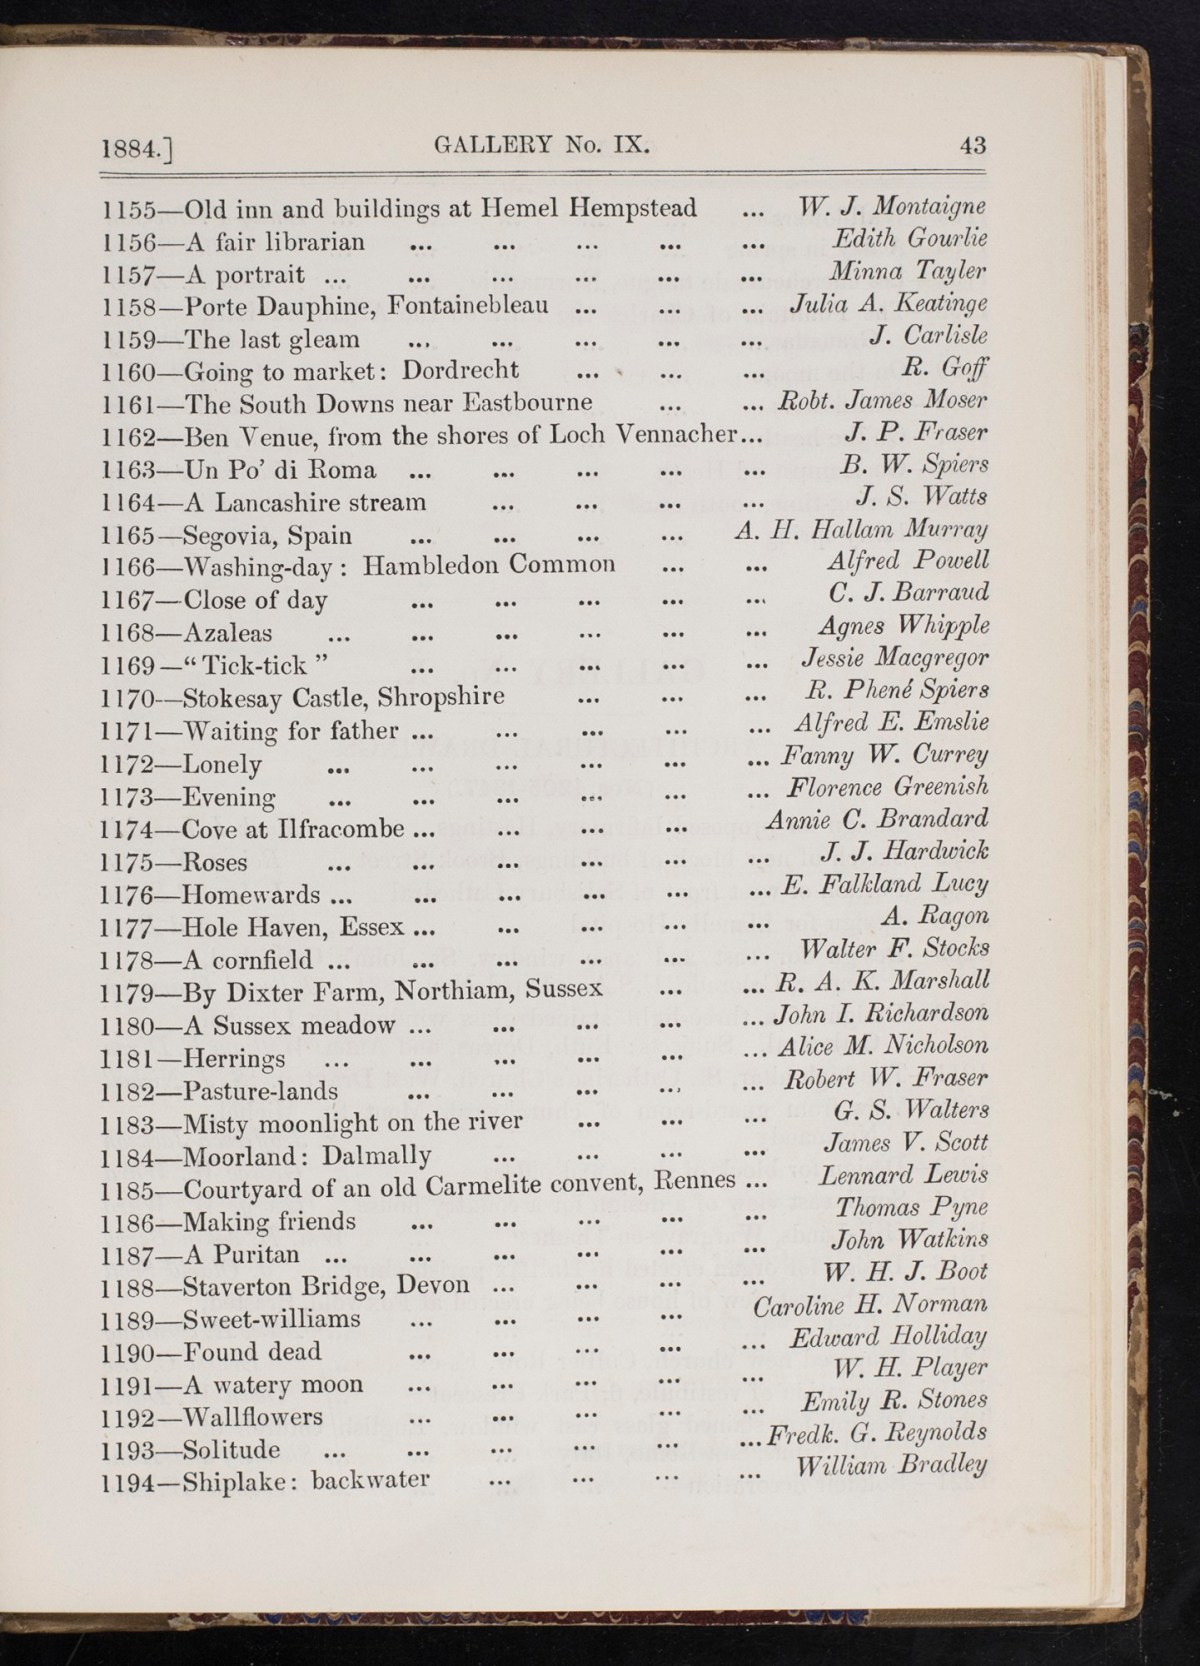 1884.] GALLERY No. IX. 43
1155—Old inn and buildings at Hemel Hempstead ... W. J. Montaigne
1156—A fair librarian ... ... ... ... ... Edith Gourlie
1157—A portrait ... ... ... ... ... ... Minna Tayler
1158—Porte Dauphine, Fontainebleau ... ... ... Julia A. Keatinge
1159—The last gleam ... ... ... ... ... J. Carlisle
1160—Going to market: Dordrecht ... ... ... R. Goff
1161—The South Downs near Eastbourne ... ... Robt. James Moser
1162—Ben Venue, from the shores of Loch Vennacher... J. P. Fraser
1163—Un Po’ di Roma ... ... ... ... ... B. W. Spiers
1164—A Lancashire stream ... ... ... ... J. S. Watts
1165—Segovia, Spain ... ... ... ... A. H. Hallam Murray
1166—Washing-day : Hambledon Common ... ... Alfred Powell
1167—Close of day ... ... ... ... ... C. J. Barraud
1168—Azaleas ... ... ... ... ... ... Agnes Whipple
1169—“ Tick-tick ” ... ... ... ... ... Jessie Macgregor
1170—Stokesay Castle, Shropshire ... ... ... R. Phené Spiers
1171—Waiting for father ... ... ... ... ... Alfred E. Emslie
1172—Lonely ... ... ... ... ... ... Fanny W. Currey
1173—Evening ... ... ... ... ... ... Florence Greenish
1174—Cove at Ilfracombe ... ... ... ... Annie C. Brandard
1175—Roses ... ... ... ... ... ... J. J. Hardwick
1176—Homewards ... ... ... ... ... ... E. Falkland Lucy
1177—Hole Haven, Essex ... ... ... ... ... A. Ragon
1178—A cornfield ... ... ... ... ... ... Walter F. Stocks
1179—By Dixter Farm, Northiam, Sussex ... ... R. A. K. Marshall
1180—A Sussex meadow ... ... ... ... ... John I. Richardson
1181—Herrings ... ... ... ... ... ... Alice M. Nicholson
1182—Pasture-lands ... ... ... ... ... Robert W. Fraser
1183—Misty moonlight on the river ... ... ... G. S. Walters
1184—Moorland: Dalmally ... ... ... ... James V. Scott
1185—Courtyard of an old Carmelite convent, Rennes ... Lennard Lewis
1186—Making friends ... ... ... ... ... Thomas Pyne
1187—A Puritan ... ... ... ... ... ... John Watkins
1188—Staverton Bridge, Devon ... ... ... ... W. H. J. Boot
1189—Sweet-williams ... ... ... ... Caroline H. Norman
1190—Found dead ... ... ... ... ... Edward Holliday
1191—A watery moon ... ... ... ... ... W. H. Player
1192—Wallflowers ... ... ... ... ... Emily R. Stones
1193—Solitude ... ... ... ... ... ... Fredk. G. Reynolds
1194—Shiplake: backwater ... ... ... ... William Bradley